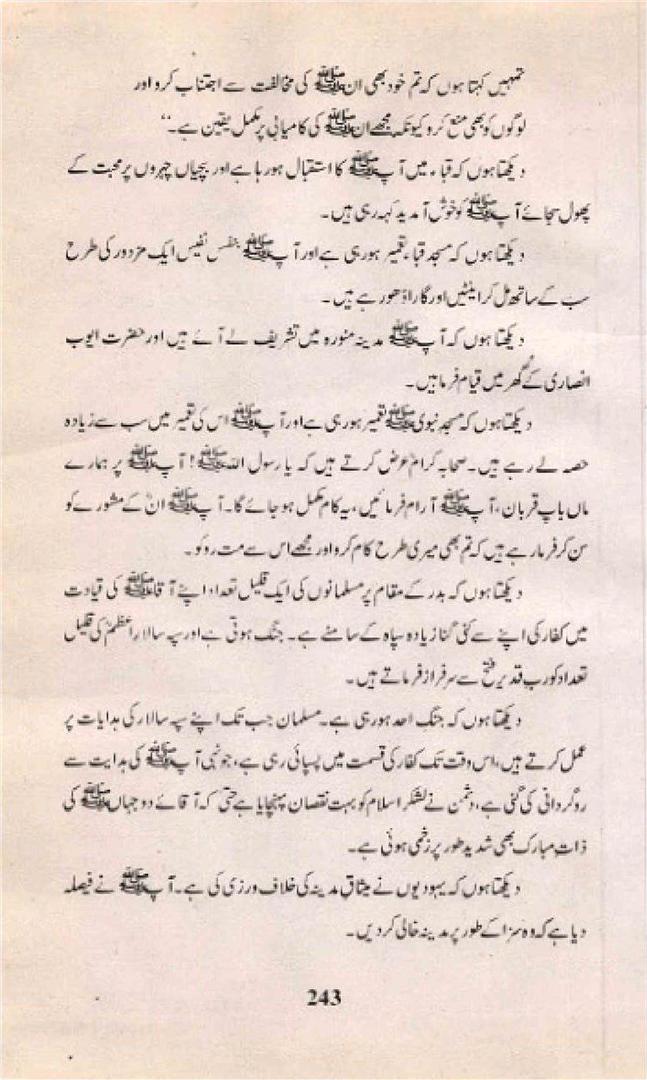 تمہیں کہتا ہوں کہ تم خود بھی ان ﷺ کی مخالفت سے اجتناب کرو اور
لوگوں کو بھی منع کرو کیونکہ مجھے ان ﷺ کی کامیابی پر مکمل یقین ہے۔‘‘
دیکھتا ہوں کہ قباء میں آپ ﷺ کا استقبال ہو رہا ہے اور بچیاں چہروں پر محبت کے
پھول سجائے آپ ﷺ کو خوش آمدید کہہ رہی ہیں۔
دیکھتا ہوں کہ مسجد قباء تعمیر ہو رہی ہے اور آپ ﷺ بنفس نفیس ایک مزدور کی طرح
سب کے ساتھ مل کر اینٹیں اور گارا ڈھو رہے ہیں۔
دیکھتا ہوں کہ آپ ﷺ مدینہ منورہ میں تشریف لے آئے ہیں اور حضرت ایوب
انصاریؓ کے گھر میں قیام فرما ہیں۔
دیکھتا ہوں کہ مسجد نبوی ﷺ تعمیر ہو رہی ہے اور آپ ﷺ اس کی تعمیر میں سب سے زیادہ
حصہ لے رہے ہیں۔ صحابہ کرامؓ عرض کرتے ہیں کہ یا رسول اللہ ﷺ! آپ ﷺ پر ہمارے
ماں باپ قربان، آپ ﷺ آرام فرمائیں، یہ کام مکمل ہو جائے گا۔ آپ ﷺ انؓ کے مشورے کو
سن کر فرما رہے ہیں کہ تم بھی میری طرح کام کرو اور مجھے اس سے مت روکو۔
دیکھتا ہوں کہ بدر کے مقام پر مسلمانوں کی ایک قلیل تعداد اپنے آقا ﷺ کی قیادت
میں کفار کی اپنے سے کئی گنا زیادہ سپاہ کے سامنے ہے۔ جنگ ہوتی ہے اور سپہ سالار اعظمؐ کی قلیل
تعداد کو رب قدیر فتح سے سرفراز فرماتے ہیں۔
دیکھتا ہوں کہ جنگ احد ہو رہی ہے۔ مسلمان جب تک اپنے سپہ سالار کی ہدایات پر
عمل کرتے ہیں، اس وقت تک کفار کی قسمت میں پسپائی رہی ہے، جونہی آپ ﷺ کی ہدایت سے
روگردانی کی گئی ہے، دشمن نے لشکر اسلام کو بہت نقصان پہنچایا ہے حتیٰ کہ آقائے دو جہاں ﷺ کی
ذات مبارک بھی شدید طور پر زخمی ہوئی ہے۔
دیکھتا ہوں کہ یہودیوں نے میثاق مدینہ کی خلاف ورزی کی ہے۔ آپ ﷺ نے فیصلہ
دیا ہے کہ وہ سزا کے طور پر مدینہ خالی کر دیں۔
243